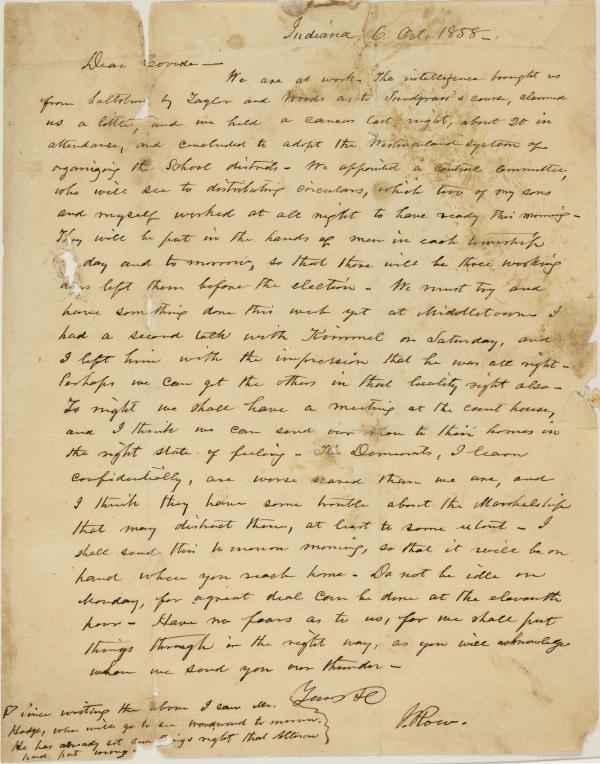 Indiana, 6 Oct. 1858 -
Dear Covode -
We are at work. The intelligence brought us
from Saltsburg by Taylor and Woods as to Snodgrass's course, alarmed
us a little, and we held a caucus last night, about 20 in
attendance, and concluded to adopt the Westmoreland system of
organizing the School districts - We appointed a central committee,
who will see to distributing circulars, which two of my sons
and myself worked at all night to have ready this morning -
They will be put in the hands of men in each township
day and to morrow, so that there will be three working
days left them before the election - We must try and
have something done this week yet at Middletown - I
had a second talk with Kimmel on Saturday, and
I left him with the impression that he was all right -
Perhaps we can get the others in that locality right also -
To night we shall have a meeting at the court house,
and I think we can send our men to their homes in
the right state of feeling - The Democrats, I learn
confidentially, are worse scared than we are, and
I think they have some trouble about the Marshalship
that may distract them, at least to some extent - I
shall send this to morrow morning, so that it will be on
hand when you reach home - Do not be idle on
Monday, for a great deal can be done at the eleventh
hour - Have no fears as to us, for we shall put
things through in the right way, as you will acknowledge
when we send you our thunder -
Yours &c
J. Row.
Since writing the above I saw Mr.
Hodge, who will go to see Woodward to morrow.
He has already set some things right that Allison
had put wrong.